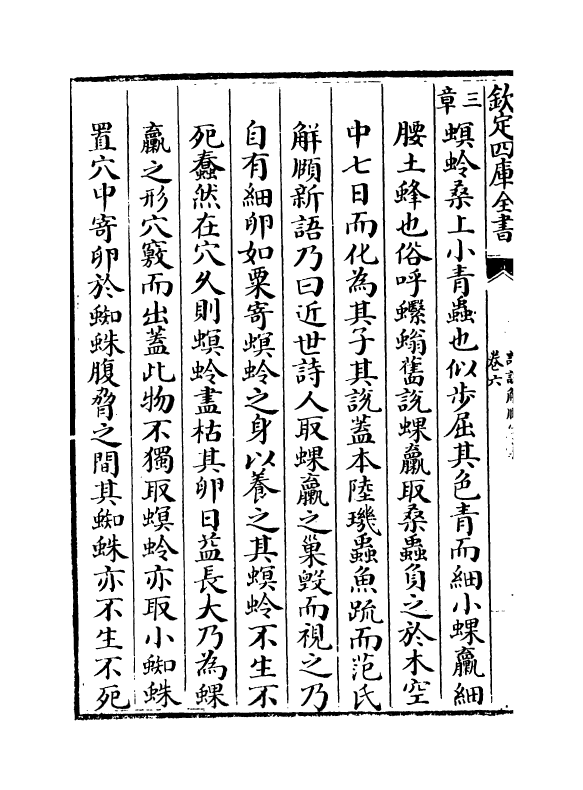 欽定四庫全書
卷六
三章
螟蛉桑上小青蟲也似步屈其色青而細小蜾蠃細
腰土蜂也俗呼蠮螉舊說蜾蠃取桑蟲負之於木空
中七日而化為其子其說蓋本陸璣蟲魚疏而范氏
解頤新語乃曰近世詩人取蜾蠃之巢毀而視之乃
自有細卵如粟寄螟蛉之身以養之其螟蛉不生不
死蠢然在穴久則螟蛉盡枯其卵日益長大乃為蜾
蠃之形穴竅而出蓋此物不獨取螟蛉亦取小蜘蛛
置穴中寄卵於蜘蛛腹脅之間其蜘蛛亦不生不死